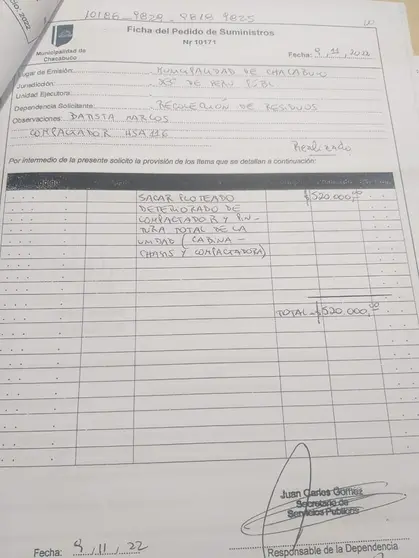 10186 - 9828 - 9819 9825
Ficha del Pedido de Suministros
Nr 10171
Municipalidad de
Chacabuco
Fecha: 9, 11, 2022
Lugar de Emisión: MUNICIPALIDAD DE CHACABUCO
Jurisdicción:
Unidad Ejecutora:
Dependencia Solicitante: RECOLECCIÓN DE RESIDUOS
Observaciones BATISTA MARCOS
COMPACTADOR HSA 116
Realizado
Por intermedio de la presente solicito la provisión de los items que se detallan a continuación:
SACAR PLOTEADO $520.000,00
DETERIORADO DE
COMPACTADOR Y PIN-
TURA TOTAL DE LA
UNIDAD (CABINA -
CHASIS Y COMPACTADORA)
TOTAL - $520.000,00
Juan Carlos Gomez
Secretario de
Servicios Publicos
Fecha: 9, 11, 22
Responsable de la Dependencia